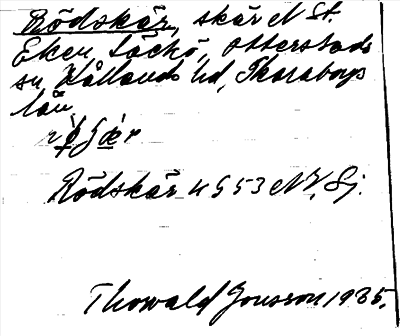 Rödskär, skär N St.
Eken, Läckö, Otterstads
sn, Kållands hd, Skaraborgs
län
Rödskär 4 G 53 NV, Sj.
Thorvald Jonsson 1935.